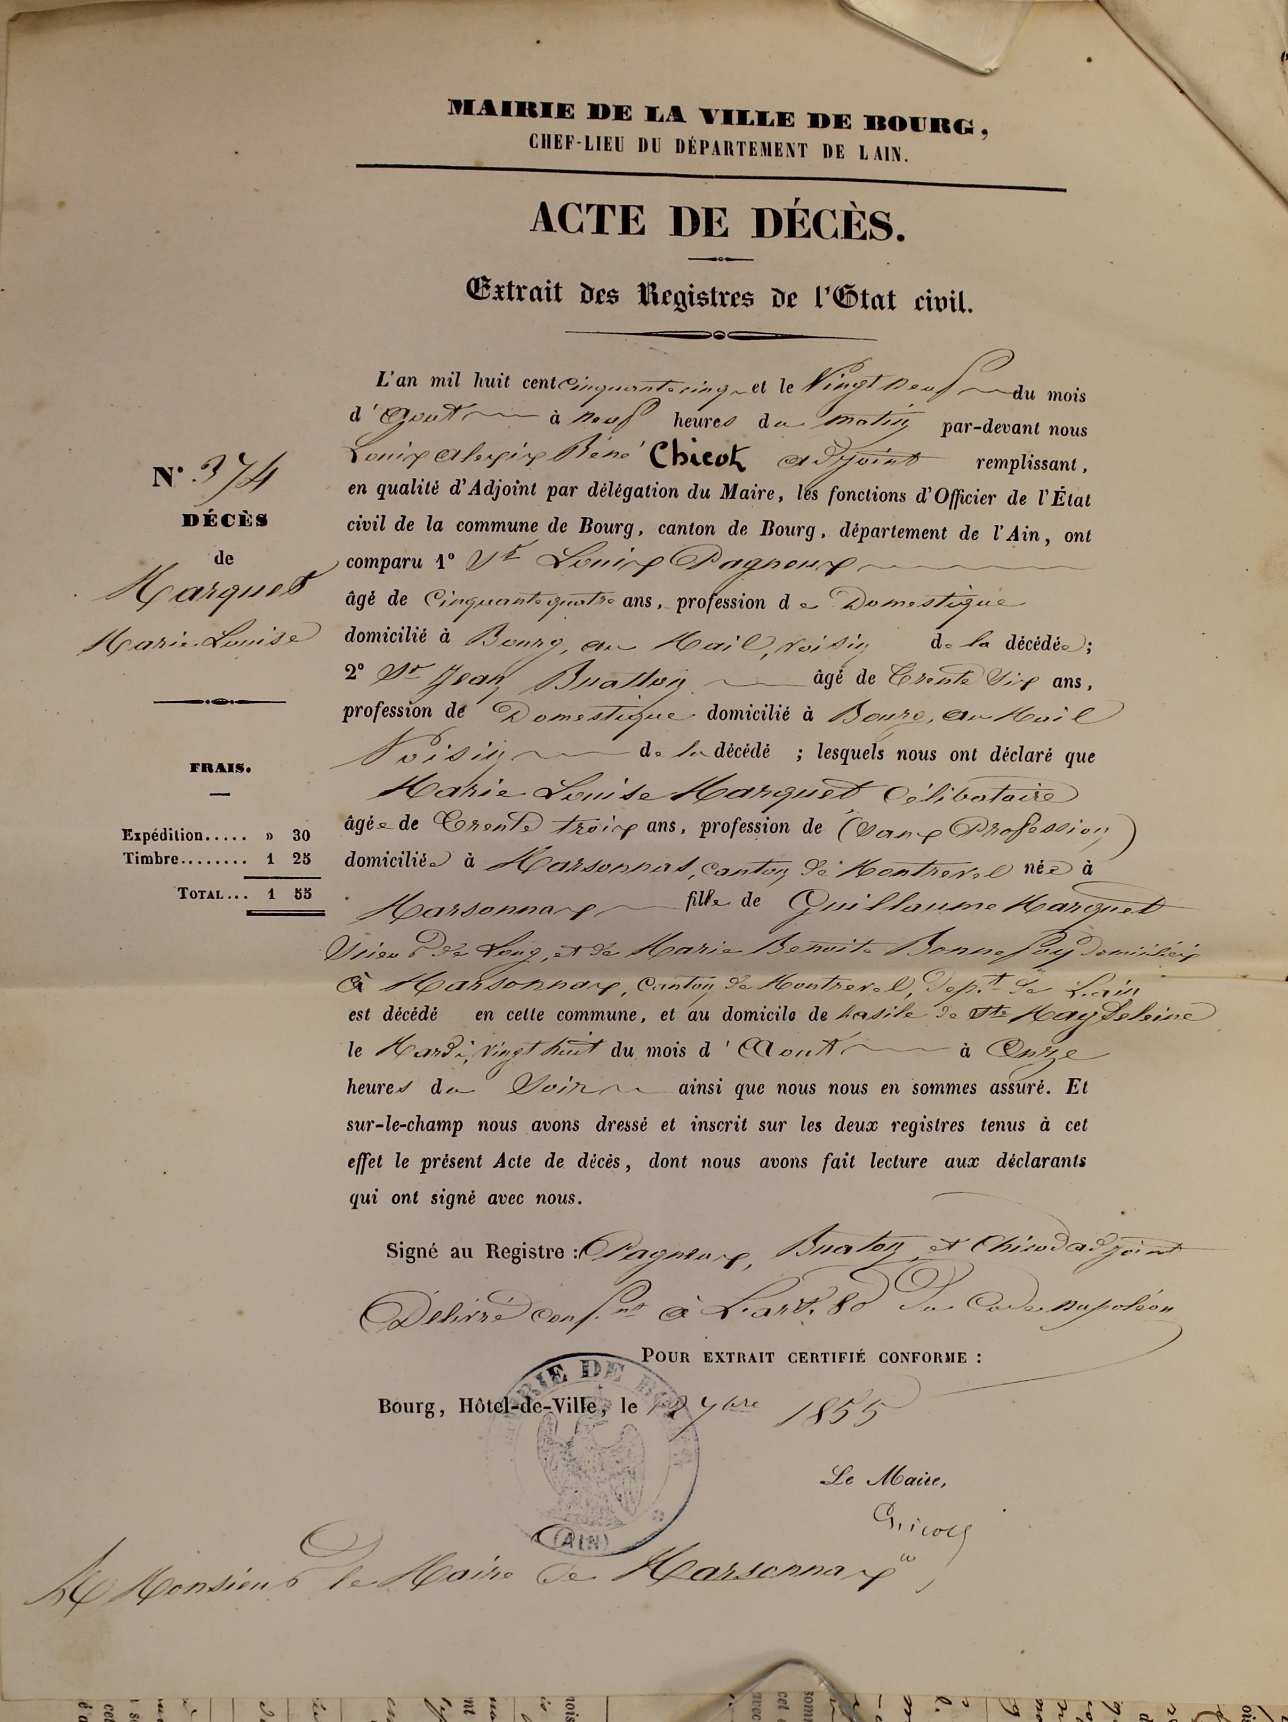 MAIRIE DE LA VILLE DE BOURG,
CHEF-LIEU DU DÉPARTEMENT DE L AIN.
ACTE DE DÉCÈS.
Extrait des Registres de l'État civil.
N° 374
DÉCÈS
de
Marquet
Marie Louise
FRAIS.
Expédition..... » 30
Timbre........ 1 25
TOTAL... 1 55
L'an mil huit cent cinquante cinq et le Vingt neuf du mois
d'Aout à neuf heures du matin par-devant nous
Louis Alexis Réné Chicot adjoint remplissant,
en qualité d'Adjoint par délégation du Maire, les fonctions d'Officier de l'État
civil de la commune de Bourg, canton de Bourg, département de l'Ain, ont
comparu 1° Sr Louis Pagneux
âgé de Cinquante quatre ans, profession de Domestique
domicilié à Bourg, au Mail, voisin de la décédée;
2° Sr Jean Buatton âgé de Trente Six ans,
profession de Domestique domicilié à Bourg, au Mail
Voisin de la décédé ; lesquels nous ont déclaré que
Marie Louise Marquet Célibataire
âgée de Trente trois ans, profession de (Sans Profession)
domiciliée à Marsonnas, canton de Montrevel née à
Marsonnax fille de Guillaume Marquet
de Long, et de Marie Benoite Bonnefoy domiciliés
à Marsonnax, canton de Montrevel, dept de L'ain
est décédé en cette commune, et au domicile de hasile de Ste Magdeleine
le Mardi, Vingt huit du mois d'Aout à Onze
heures du Soir ainsi que nous nous en sommes assuré. Et
sur-le-champ nous avons dressé et inscrit sur les deux registres tenus à cet
effet le présent Acte de décès, dont nous avons fait lecture aux déclarants
qui ont signé avec nous.
Signé au Registre : Pagneux, Buaton, et Chicod adjoint
Délivré conf.nt à L'art. 80 du Code napoléon
POUR EXTRAIT CERTIFIÉ CONFORME :
Bourg, Hôtel-de-Ville, le 7bre 1855
MAIRIE DE BOURG
(AIN)
Le Maire,
Chicod
A Monsieur le Maire de Marsonnax